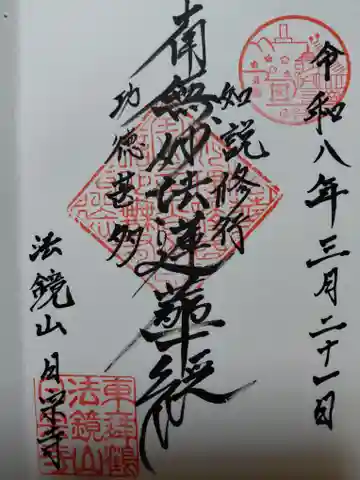 令和八年三月二十一日
如説修行
南無妙法蓮華経
功徳甚多
法鏡山日栄寺
法鏡山